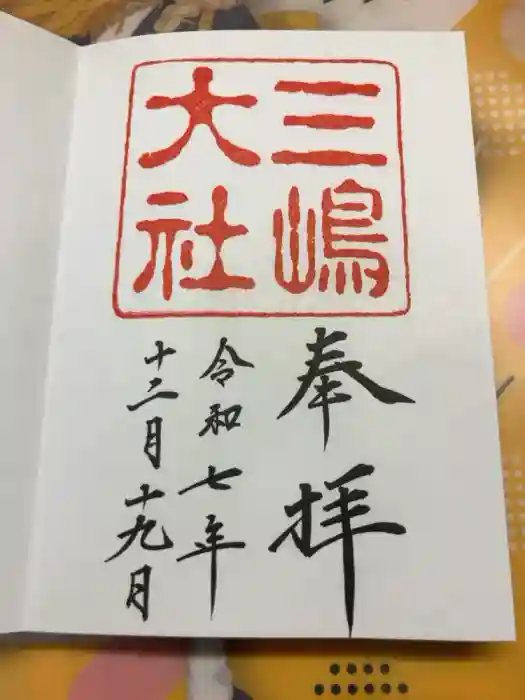 三嶋
大社
奉拝
令和七年
十二月十九月